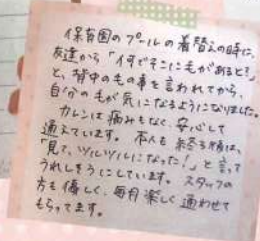 保育園のプールの着替えの時に、
友達から「何でそこに毛があると!」
と、背中の毛の事を言われてから、
自分の毛が気になるようになりました。
カレンは痛みもなく、安心して
通えています。本人も終る頃は、
「見て、ツルツルになった!」と言って
うれしそうにしています。スタッフの
方も優しく、毎月楽しく通わせて
もらってます。